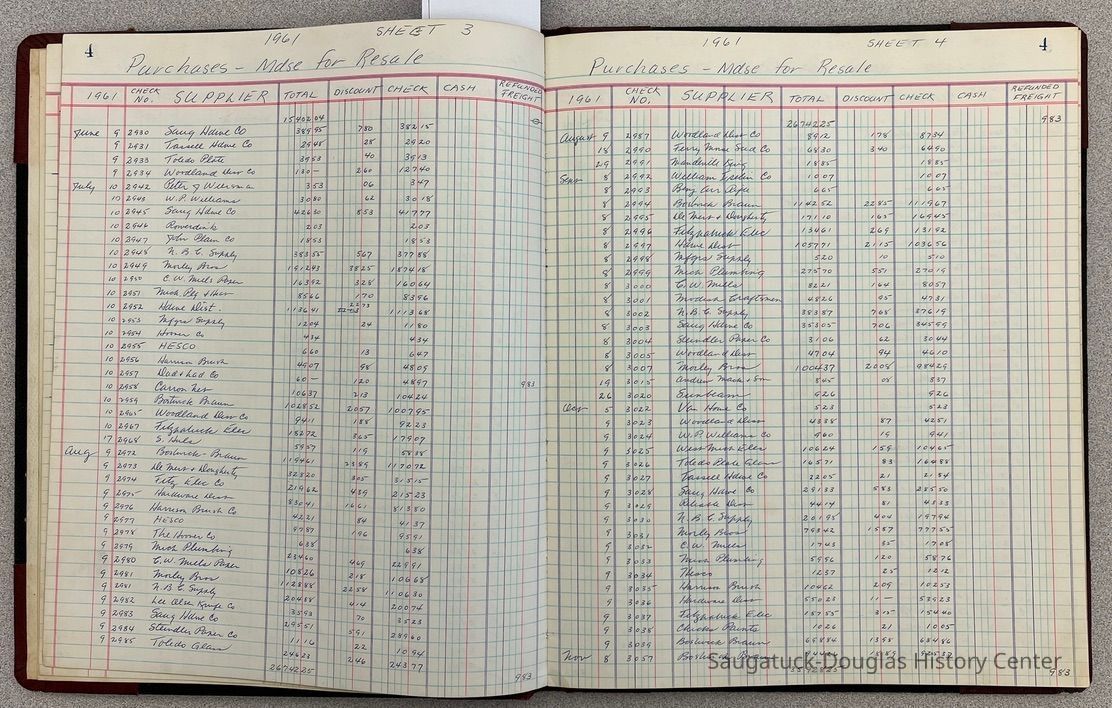 4 1961 SHEET 3
Purchases - Mdse for Resale
1961 CHECK No. SUPPLIER TOTAL DISCOUNT CHECK CASH REFUNDED FREIGHT
1540204
June 9 2930 Saug Hdwe Co 38995 780 38215
9 2931 Tassell Hdwe Co 2948 28 2920
9 2933 Toledo Plate 3953 40 3913
9 2934 Woodland Dist Co 130- 260 12740
July 10 2942 353 06 347
10 2943 W.P. Williams 3080 62 3018
10 2945 Saug Hdwe Co 42630 853 41777
10 2946 203 203
10 2947 John Plain Co 1853 1853
10 2948 N.B.C. Supply 38355 567 37788
10 2949 Morley Bros 191243 3825 187418
10 2950 C.W. Mills Paper 16392 328 16064
10 2951 8566 170 8396
10 2952 Hdwe Dist. 113641 2273 111368
10 2953 Mfgrs Supply 1204 24 1180
10 2954 Hoover Co 434 434
10 2955 HESCO 660 13 647
10 2956 Harrison Brush 4907 98 4809
10 2957 Dad & Lad Co 60- 120 4897 983
10 2958 10637 213 10424
10 2959 Bostwick Braun 102852 2057 100795
10 2965 Woodland Dist Co 9411 188 9223
10 2967 Fitzpatrick Elec 18272 365 17907
17 2968 5957 119 5838
Aug 9 2972 Bostwick-Braun 119461 2389 117072
9 2973 De Mert & Dougherty 32820 305 31515
9 2974 Fitz Elec Co 21962 439 21523
9 2975 Hardware Dist 83041 1661 81380
9 2976 Harrison Brush Co 4221 84 4137
9 2977 HESCO 9787 196 9591
9 2978 The Hoover Co 638 638
9 2979 Mich Plumbing 23460 469 22991
9 2980 C.W. Mills Paper 10826 218 10668
9 2981 Morley Bros 112888 2258 110630
9 2981 N.B.C. Supply 20488 414 20074
9 2982 3593 70 3523
9 2983 Saug Hdwe Co 29551 591 28960
9 2984 Steindler Paper Co 1116 22 1094
9 2985 Toledo Glass 24623 246 24377
2674225 983
1961 SHEET 4 4
Purchases - Mdse for Resale
1961 CHECK NO. SUPPLIER TOTAL DISCOUNT CHECK CASH REFUNDED FREIGHT
2674225 983
August 9 2987 Woodland Dist Co 8912 178 8734
18 2990 Ferry Morse Seed Co 6830 340 6490
29 2991 1885 1885
8 2992 1007 1007
8 2993 665 665
8 2994 Bostwick Braun 114252 2285 111967
8 2995 De Mert & Dougherty 17110 165 16945
8 2996 Fitzpatrick Elec 13461 269 13192
8 2997 Hdwe Dist 105771 2115 103656
8 2998 Mfgrs Supply 520 10 510
8 2999 Mich Plumbing 27570 551 27019
8 3000 C.W. Mills 8221 164 8057
8 3001 Modern Craftsmen 4826 95 4731
8 3002 N.B.C. Supply 38387 768 37619
8 3003 Saug Hdwe Co 35305 706 34599
8 3004 Steindler Paper Co 3106 62 3044
8 3005 Woodland Dist 4704 94 4610
8 3007 Morley Bros 100437 2008 98429
19 3015 Andrew Mack & Son 845 08 837
26 3020 Sunbeam 926 926
5 3022 Van Horne Co 523 523
9 3023 Woodland Dist 4338 87 4251
9 3024 W.P. Williams Co 960 19 941
9 3025 West Mich Elec 10624 159 10465
9 3026 Toledo Plate Glass 16571 83 16488
9 3027 Tassell Hdwe Co 2205 21 2184
9 3028 Saug Hdwe Co 29133 583 28550
9 3029 Reliable Dist 4414 81 4333
9 3030 N.B.C. Supply 20198 404 19794
9 3031 Morley Bros 79342 1587 77755
9 3032 C.W. Mills 1743 35 1708
9 3033 Mich Plumbing 5996 120 5876
9 3034 Hesco 1237 25 1212
9 3035 Harrison Brush 10462 209 10253
9 3036 Hardware Dist 55023 11- 53923
9 3037 Fitzpatrick Elec 15755 315 15440
9 3038 1026 21 1005
9 3039 Bostwick Braun 69884 1398 68486
Nov 8 3057 Bostwick Braun
983
Saugatuck-Douglas History Center